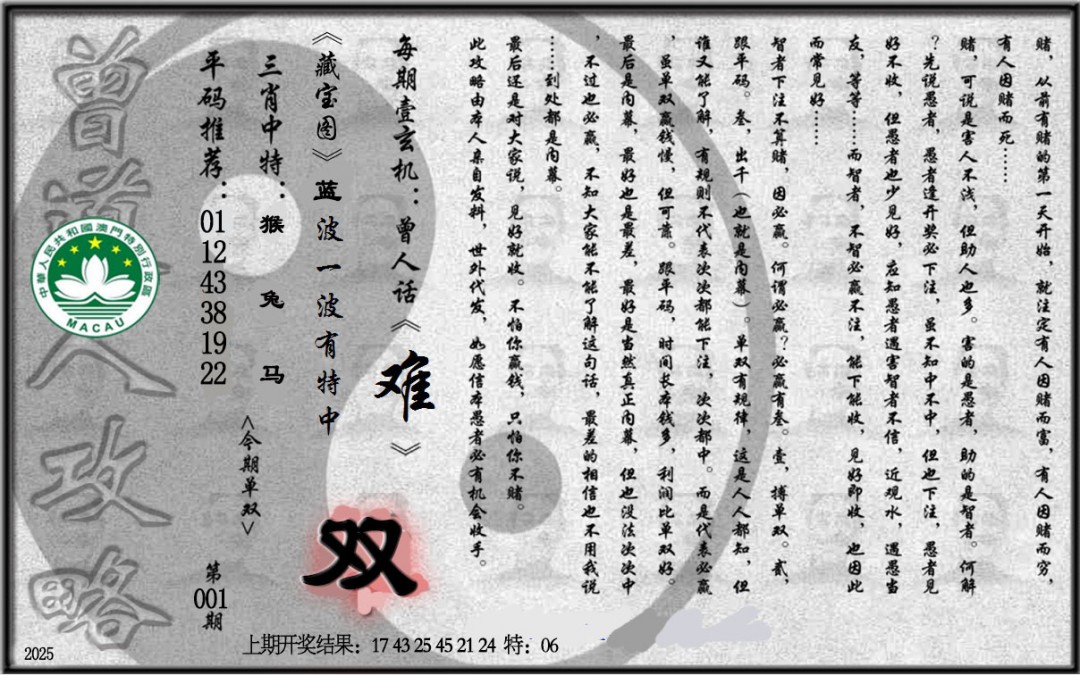 赌，从前有赌的第一天开始，就注定有人因赌而富，有人因赌而穷，
有人因赌而死……
赌，可说是害人不浅，但助人也多。害的是愚者，助的是智者。何解
？先说愚者，愚者逢开奖必下注，虽不知中不中，但也下注，愚者见
好不收，但愚者也少见好，应知愚者遇害智者不信，近观水，遇愚当
友，等等……而智者，不智必赢不注，能下能收，见好即收，也因此
而常见好……
智者下注不算赌，因必赢。何谓必赢？必赢有叁。壹，搏单双。贰，
跟平码。叁，出千（也就是内幕）。单双有规律，这是人人都知，但
谁又能了解，有规则不代表次次都能下注，次次都中。而是代表必赢
，虽单双赢钱慢，但可靠。跟平码，时间长本钱多，利润比单双好。
最后是内幕，最好也是最差，最好是当然真正内幕，但也没法次次中
，不过也必赢，不知大家能不能了解这句话，最差的相信也不用我说
……到处都是内幕。
最后还是对大家说，见好就收。不怕你赢钱，只怕你不赌。
此攻略由本人亲自发料，世外代发，如愿信本愚者必有机会收手。
每期壹玄机：曾人话《难》
《藏宝图》蓝波一波有特中
双
三肖中特：猴 兔 马
<今期单双>
平码推荐：01 12 43 38 19 22
第001期
曾道人攻略
中華人民共和國澳門特別行政區
MACAU
上期开奖结果：17 43 25 45 21 24 特：06
2025